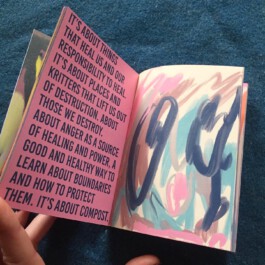 IT'S ABOUT THINGS
THAT HEAL US AND OUR
RESPONSIBILITY TO HEAL.
IT'S ABOUT PLACES AND
KRITTERS THAT LIFT US OUT
OF DESTRUCTION. ABOUT
THOSE WE DESTROY.
ABOUT ANGER AS A SOURCE
OF HEALING AND POWER. A
GOOD AND HEALTHY WAY TO
LEARN ABOUT BOUNDARIES
AND HOW TO PROTECT
THEM. IT'S ABOUT COMPOST.